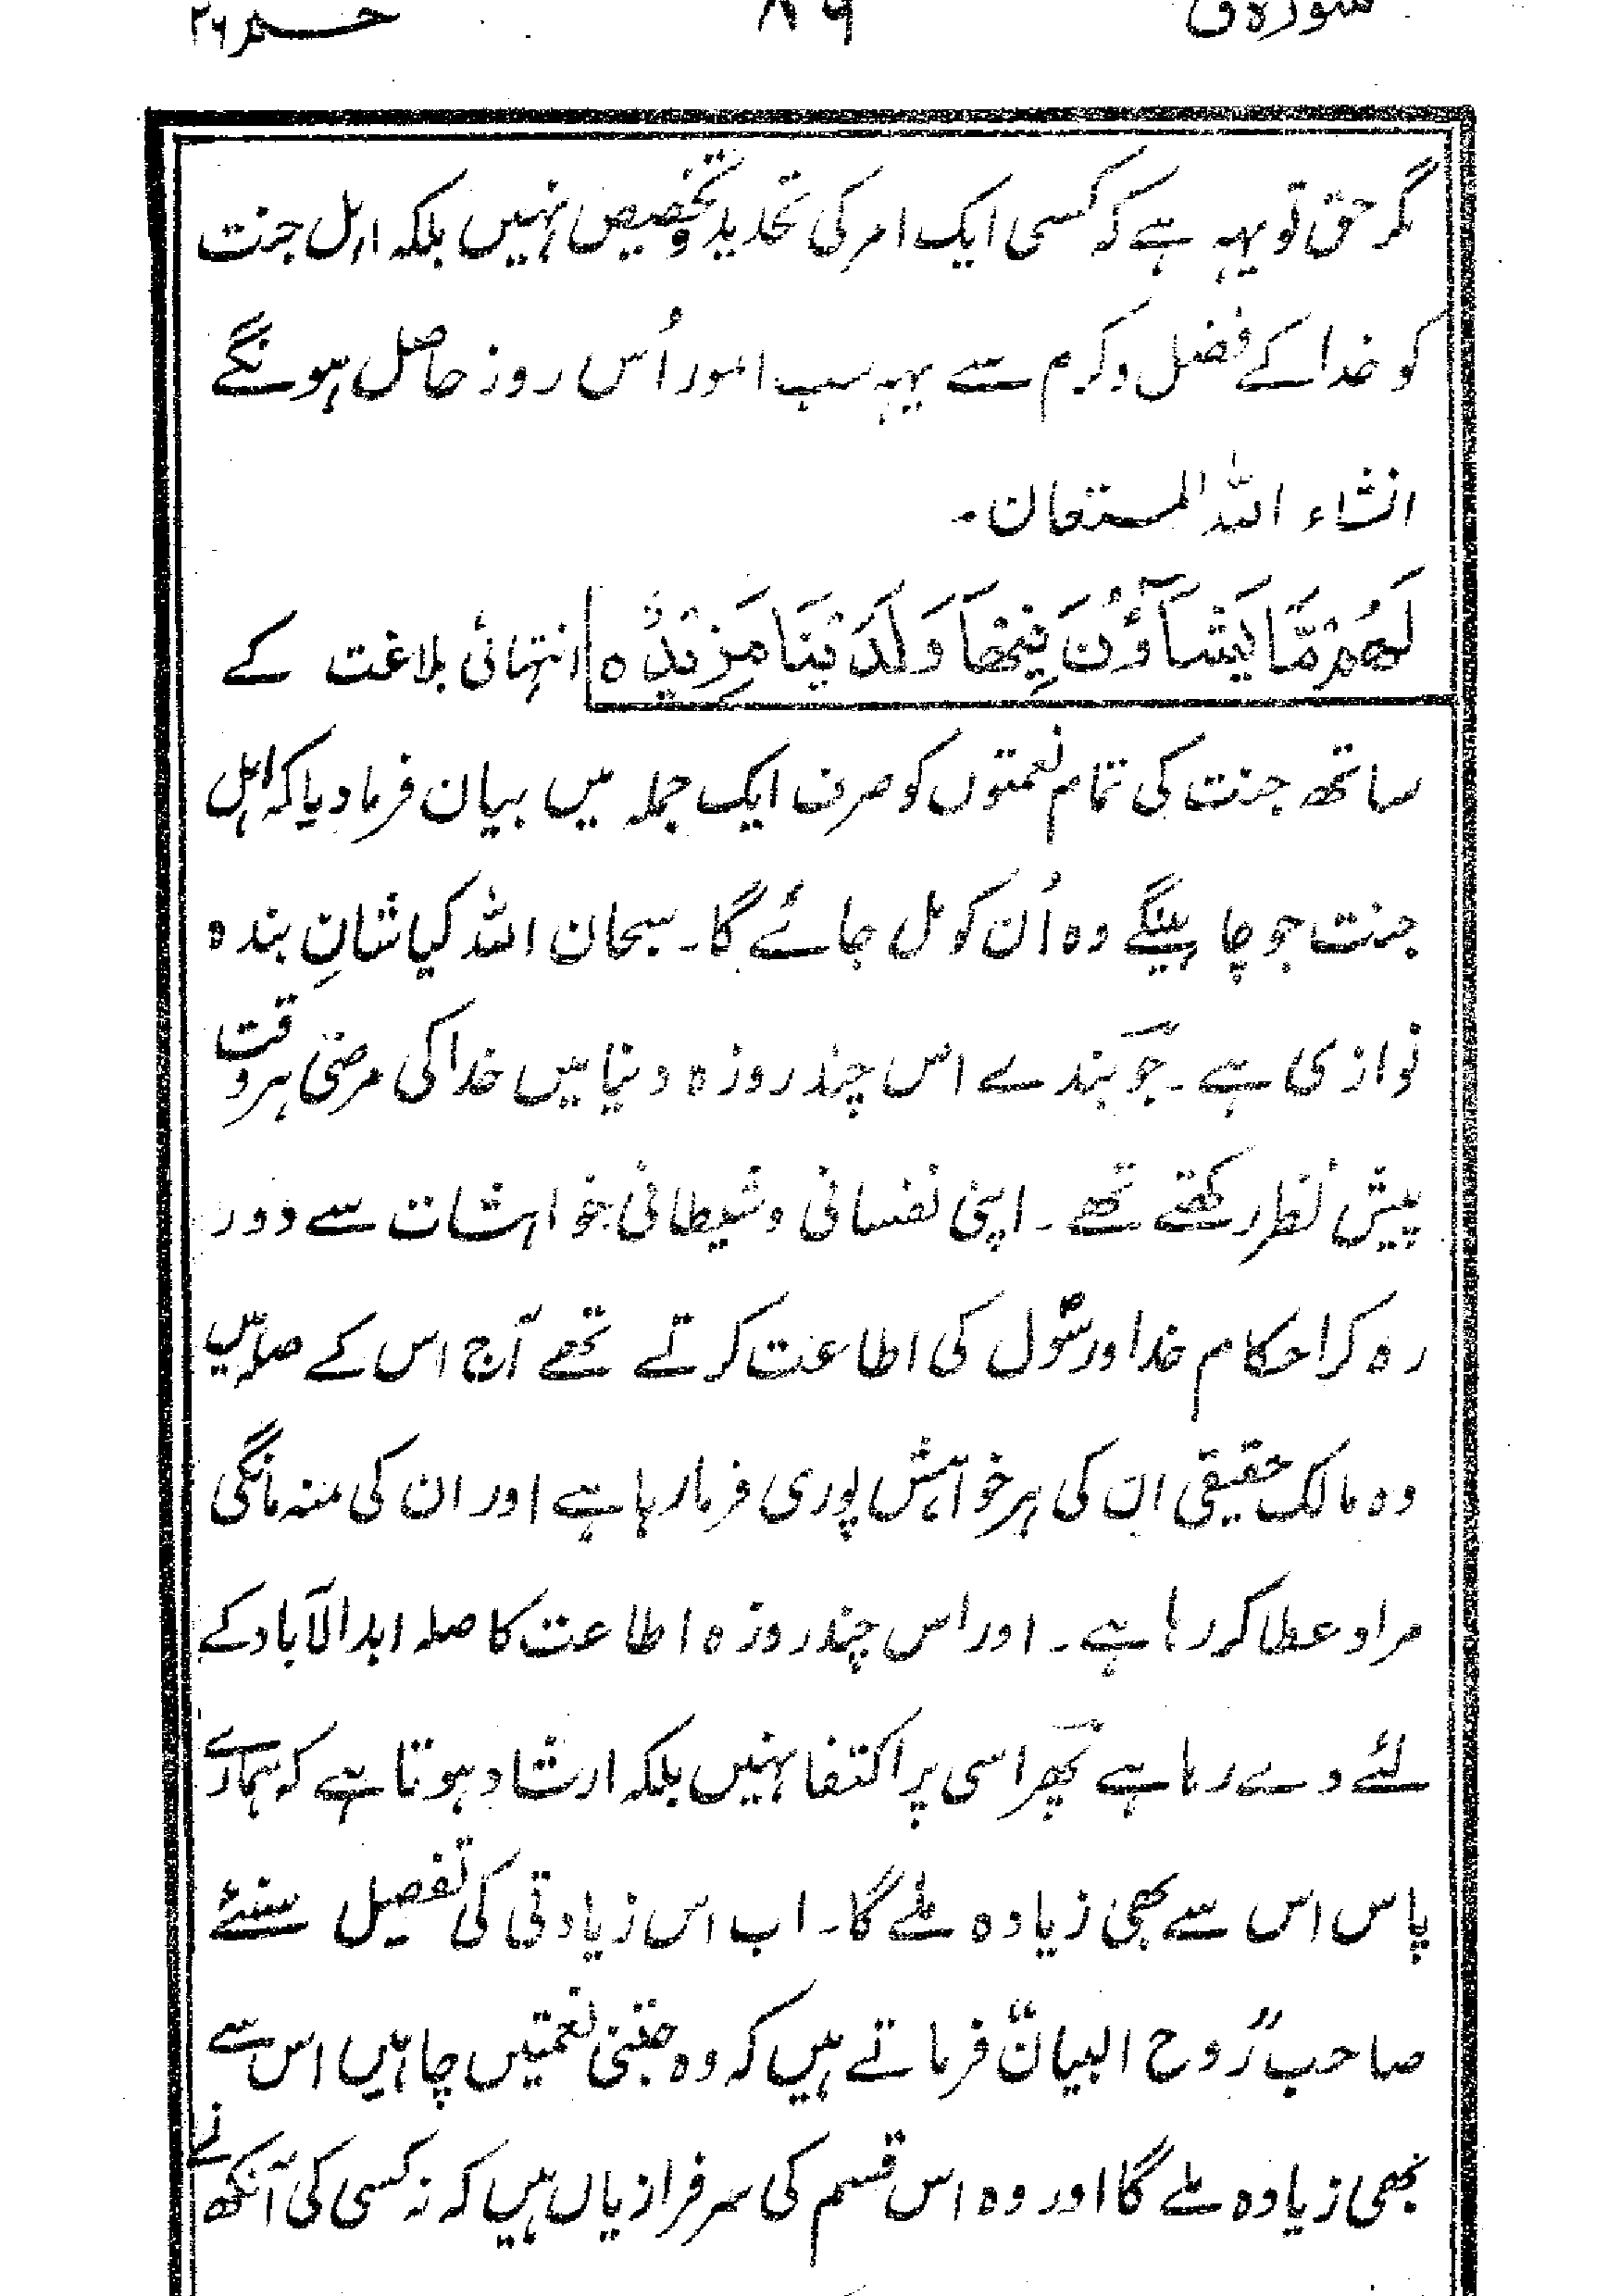 سورہ ق ۸۹ حٰمٓ ۲۶
مگر حق تو یہہ ہے کہ کسی ایک امر کی تحدید و تخصیص نہیں بلکہ اہل جنت
کو خدا کے فضل و کرم سے یہہ سب امور اُس روز حاصل ہونگے
انشاء اللہ المستعان۔
لَھُمْ مَّا یَشَآؤُنَ فِیْھَا وَلَدَیْنَا مَزِیْدٌ ہ انتہائی بلاغت کے
ساتھ جنت کی تمام نعمتوں کو صرف ایک جملہ میں بیان فرما دیا کہ اہل
جنت جو چاہینگے وہ اُن کو مل جائے گا۔ سبحان اللہ کیا شانِ بندہ
نوازی ہے۔ جو بندے اس چند روزہ دنیا میں خدا کی مرضی ہر وقت
پیش نظر رکھتے تھے۔ اپنی نفسانی و شیطانی خواہشات سے دور
رہ کر احکام خدا و رسولؐ کی اطاعت کرتے تھے آج اس کے صلہ میں
وہ مالک حقیقی ان کی ہر خواہش پوری فرما رہا ہے اور ان کی منہ مانگی
مراد عطا کر رہا ہے۔ اور اس چند روزہ اطاعت کا صلہ ابدالآباد کے
لئے دے رہا ہے پھر اسی پر اکتفا نہیں بلکہ ارشاد ہوتا ہے کہ ہمارے
پاس اس سے بھی زیادہ ملے گا۔ اب اس زیادتی کی تفصیل سنئے
صاحب "روح البیان" فرماتے ہیں کہ وہ جتنی نعمتیں چاہیں اس سے
بھی زیادہ ملے گا اور وہ اس قسم کی سرفرازیاں ہیں کہ نہ کسی کی آنکھ نے